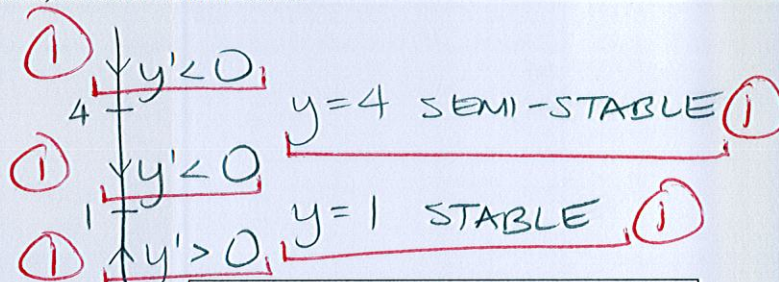 ① y'<0
4 y=4 SEMI-STABLE ①
① y'<0
1 y=1 STABLE ①
① y'>0